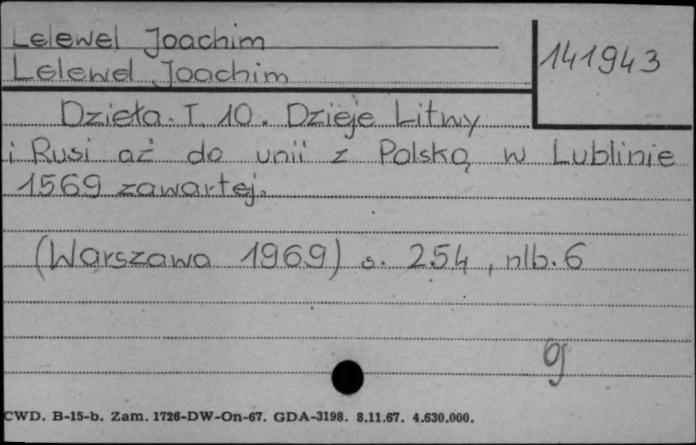 Lelewel Joachim
141943
Lelewel Joachim
Dzieła. T. 10. Dzieje Litwy
i Rusi aż do unii z Polską w Lublinie
1569 zawartej.
(Warszawa 1969) s. 254, nlb. 6
CWD. B-15-b. Zam. 1726-DW-On-67. GDA-3198. 8.11.67. 4.630.000.